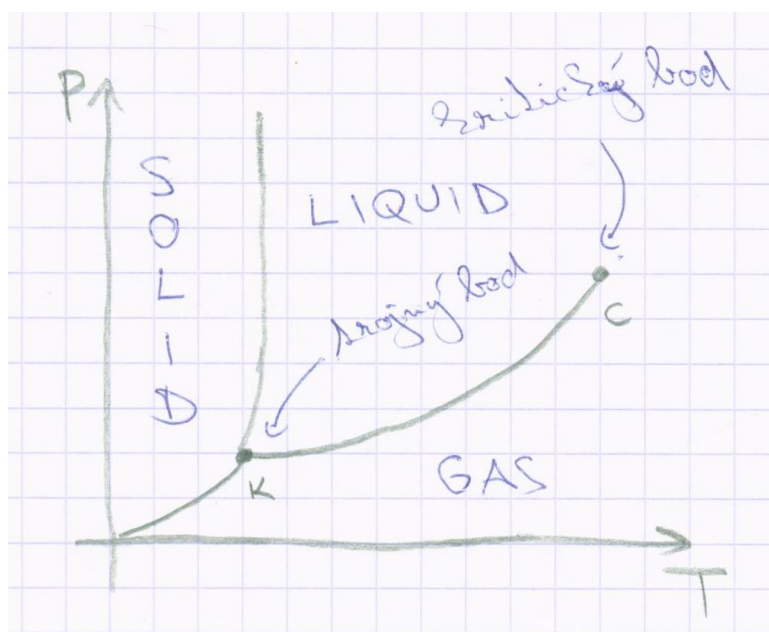 P
kritický bod
SOLID
LIQUID
trojný bod
C
GAS
K
T